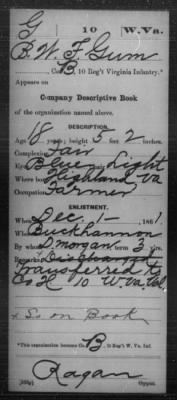 G 10 W.Va.
B. W. F. Gum
Co. B, 10 Reg't Virginia Infantry.*
Appears on
Company Descriptive Book
of the organization named above.
DESCRIPTION.
Age 18 years; height 5 feet 2 inches.
Complexion Fair
Eyes Blue; hair Light
Where born Highland Va
Occupation Farmer
ENLISTMENT.
When Dec. 1 -, 1861
Where Buckhannon
By whom D. Morgan term 3 y'rs.
Remarks: Discharged
transferred to
Co H 10 W. Va. Vol.
x So on Book
*This organization became Co. B, 10 Reg't W. Va. Inf.
Ragan
Copyist.